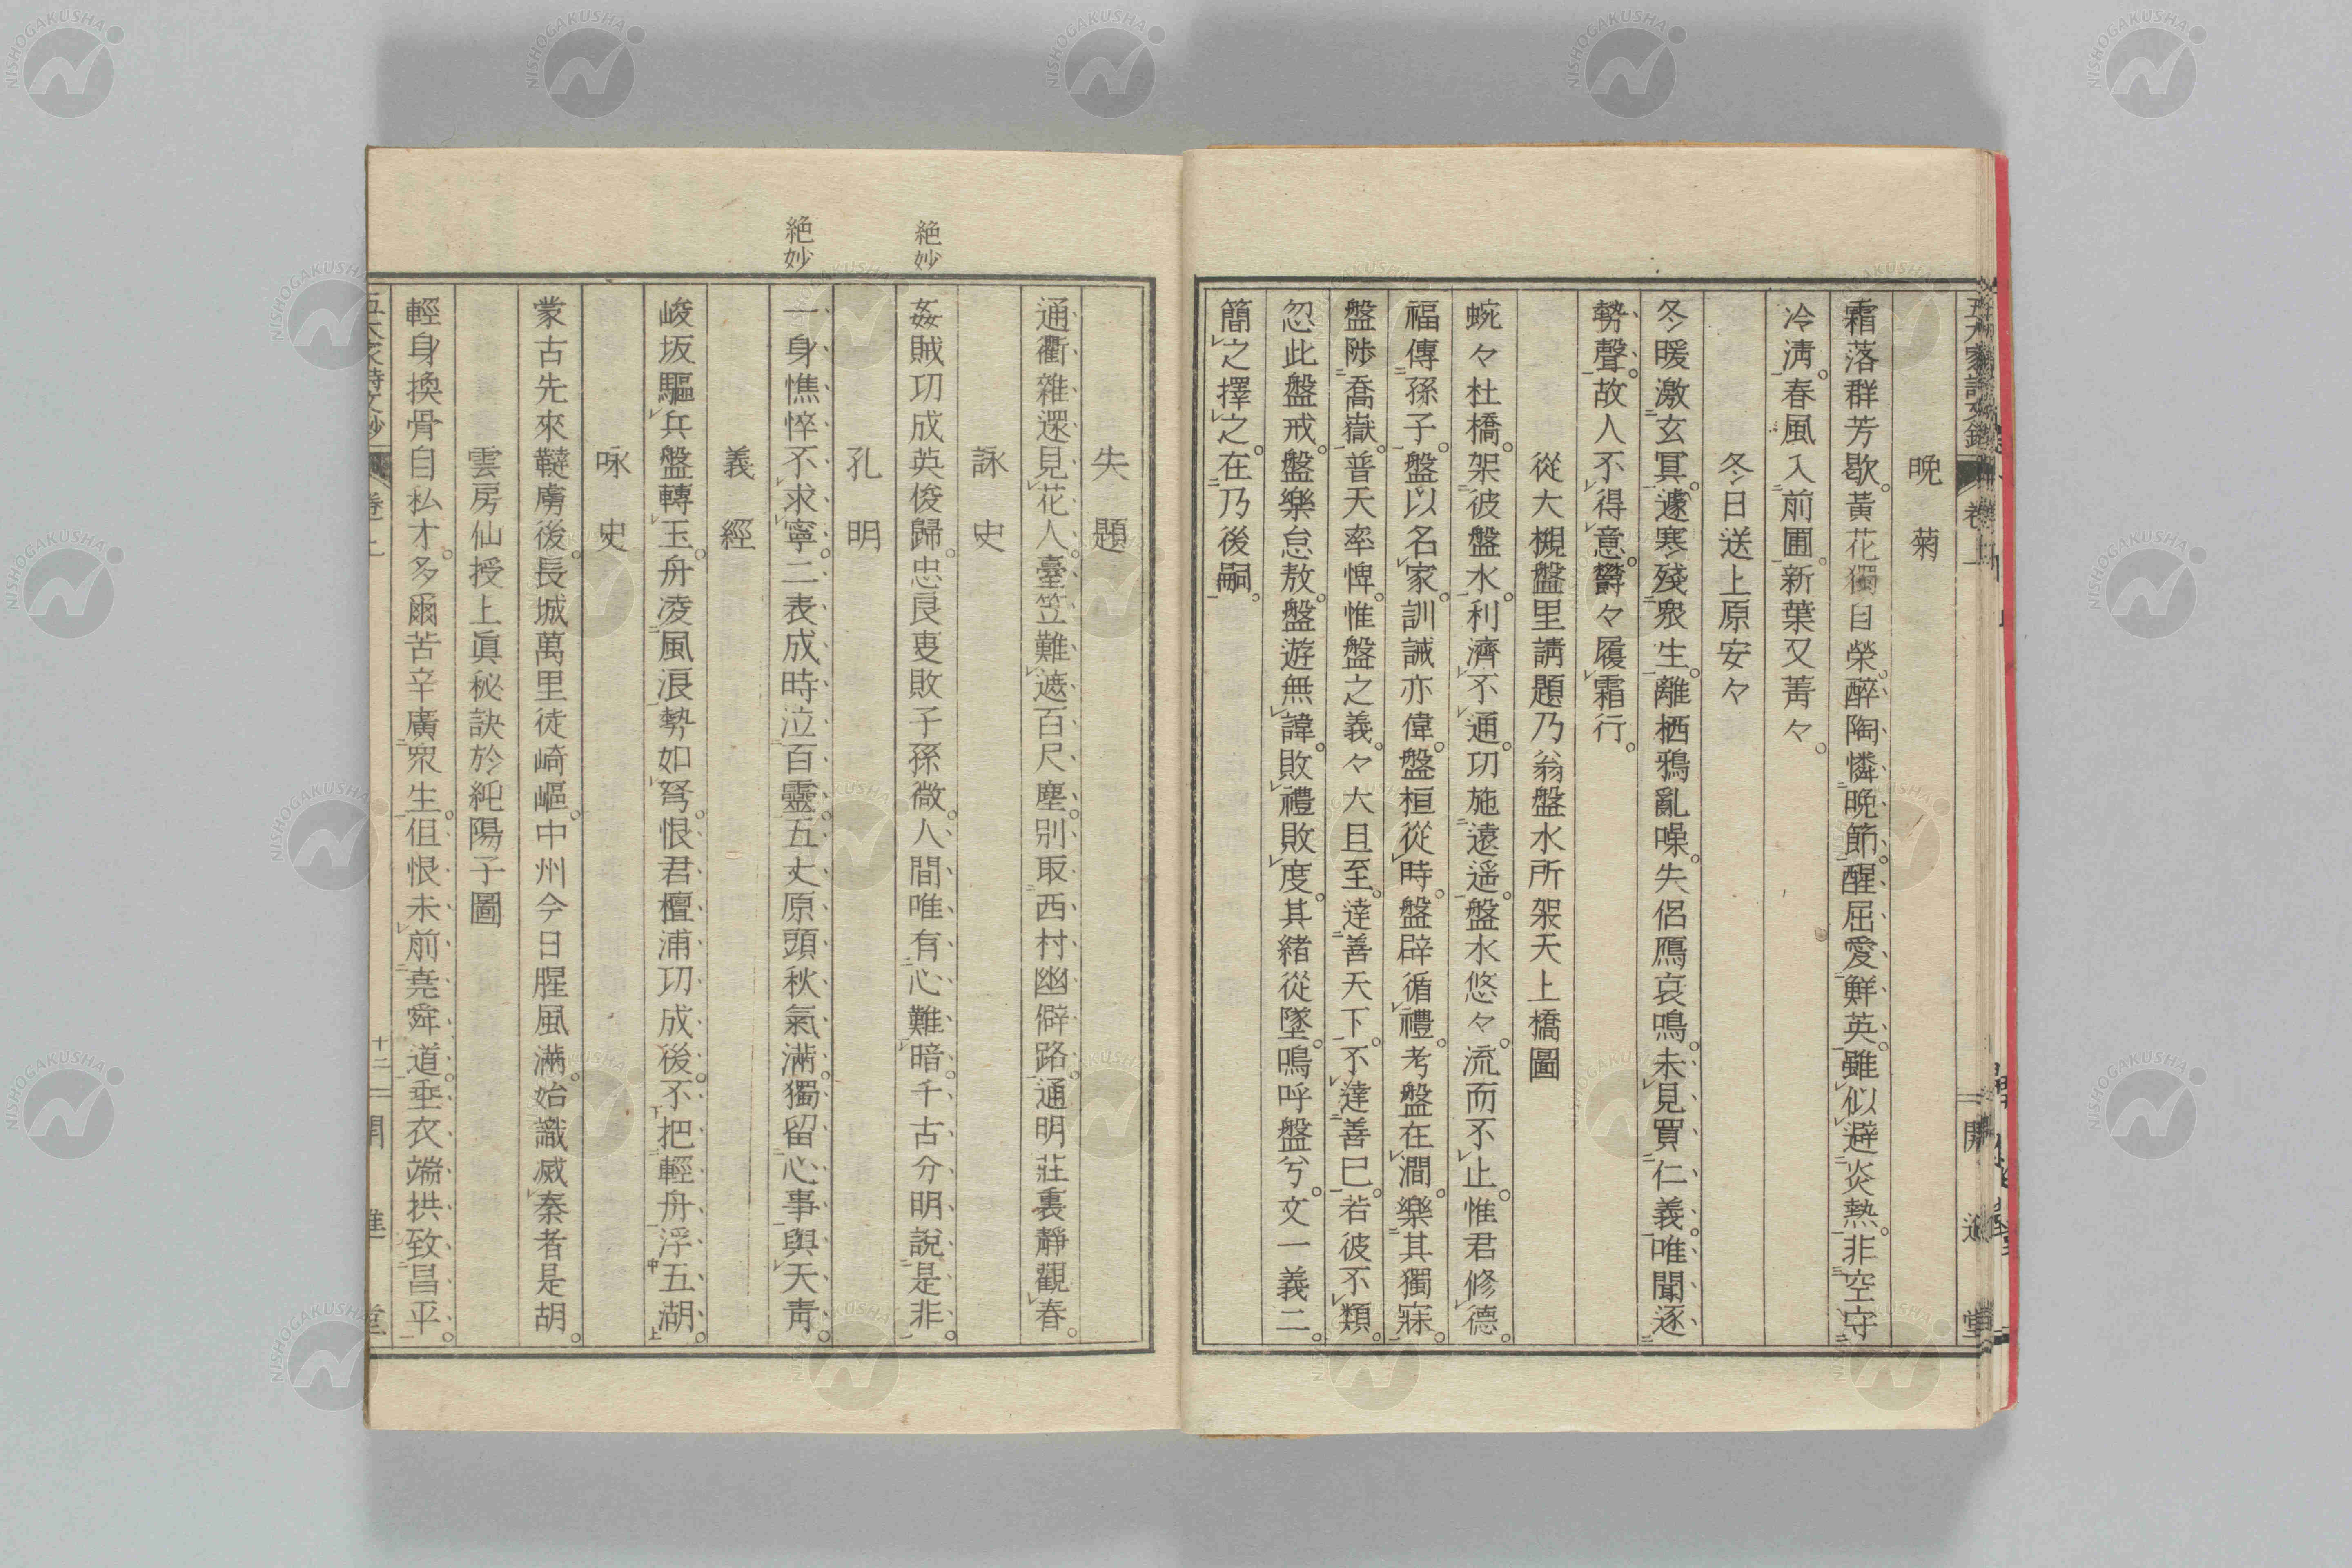 晩菊
霜落群芳歇。黃花獨自榮。醉陶憐晩節。醒屈愛鮮英。雖似避炎熱。非空守
冷淸。春風入前圃。新葉又菁々。
冬日送上原安々
冬暖激玄冥。遽寒殘衆生。離栖鴉亂噪。失侶鴈哀鳴。未見買仁義。唯聞逐
勢聲。故人不得意。欝々履霜行。
從大槻盤里請題乃翁盤水所架天上橋圖
蜿々杜橋。架彼盤水。利濟不通。功施遠遥。盤水悠々。流而不止。惟君修德。
福傳孫子。盤以名家。訓誡亦偉。盤桓從時。盤辟循禮。考盤在澗。樂其獨寐。
盤陟喬嶽。普天率俾。惟盤之義。々大且至。達善天下。不達善已。若彼不類。
忽此盤戒。盤樂怠敖。盤遊無諱。敗禮敗度。其緒從墜。嗚呼盤兮。文一義二。
簡之擇之。在乃後嗣。
失題
通衢雜還見花人。臺笠難遮百尺塵。別取西村幽僻路。通明莊裏靜觀春。
詠史
絶妙
姦賊功成英俊歸。忠良吏敗子孫微。人間唯有心難暗。千古分明說是非。
孔明
絶妙
一身憔悴不求寧。二表成時泣百靈。五丈原頭秋氣滿。獨留心事與天靑。
義經
峻坂驅兵盤轉玉。舟凌風浪勢如弩。恨君檀浦功成後。不把輕舟浮五湖。
咏史
蒙古先來韃虜後。長城萬里徒崎嶇。中州今日腥風滿。始識滅秦者是胡。
雲房仙授上眞秘訣於純陽子圖
輕身換骨自私才。多爾苦辛廣衆生。伹恨未前堯舜道。垂衣端拱致昌平。
十二